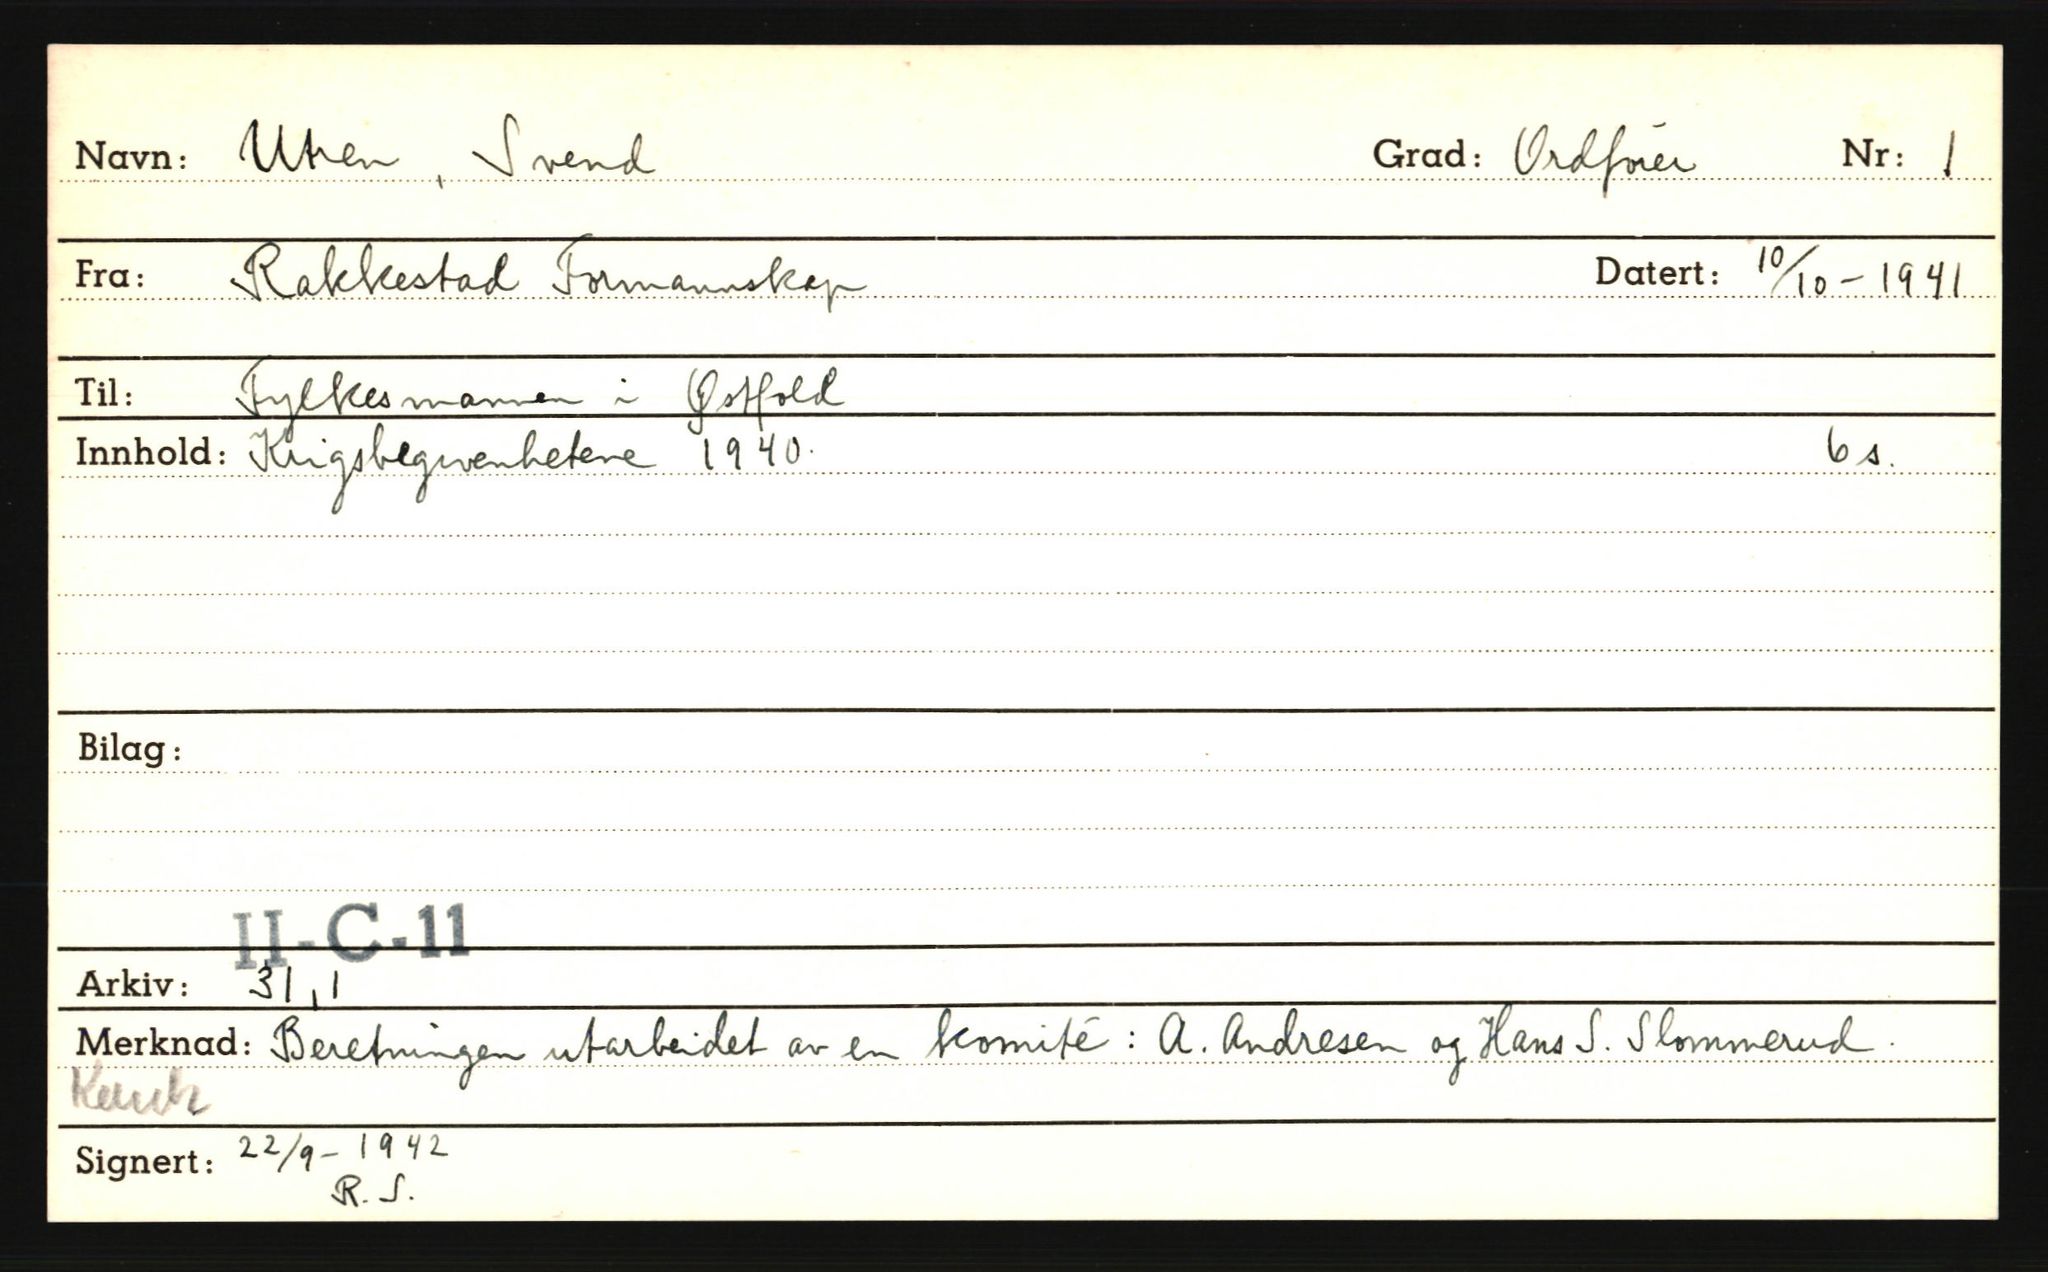 Navn: Utren, Svend Grad: Ordfører Nr: 1
Fra: Rakkestad Formannskap Datert: 10/10-1941
Til: Fylkesmannen i Østfold
Innhold: Krigsbegivenhetene 1940. 6 s.
Bilag:
II-C-11
Arkiv: 31,1
Merknad: Beretningen utarbeidet av en komité: A. Andresen og Hans S. Slommerud.
Signert: 22/9-1942
R. S.